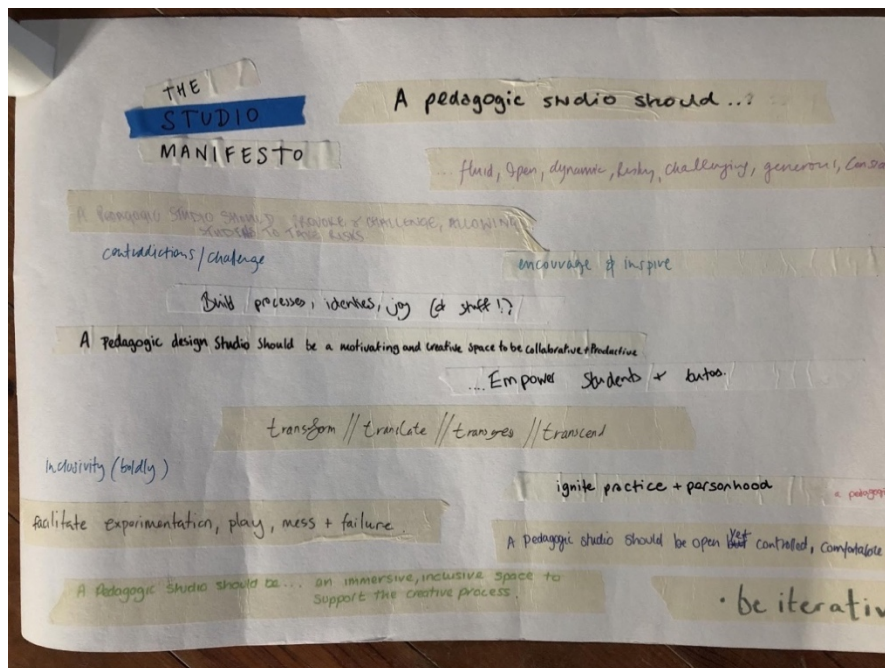 THE
STUDIO
MANIFESTO
A pedagogic studio should...?
... fluid, Open, dynamic, Risky, challenging, generous,
A PEDAGOGIC STUDIO SHOULD PROVOKE & CHALLENGE, ALLOWING
STUDENTS TO TAKE RISKS
contradictions/challenge
encourage & inspire
Build processes, identities, joy (& stuff!?)
A Pedagogic design Studio Should be a motivating and creative space to be collaborative + Productive
.... Empower Students + tutos.
transform // translate // transgres // transcend
Inclusivity (boldly)
ignite practice + personhood
a pedagogi
facilitate experimentation, play, mess + failure.
A pedagogic studio should be open yet controlled, comfortable
A Pedagogic Studio should be... an immersive, inclusive space to
support the creative process.
· be iterativ